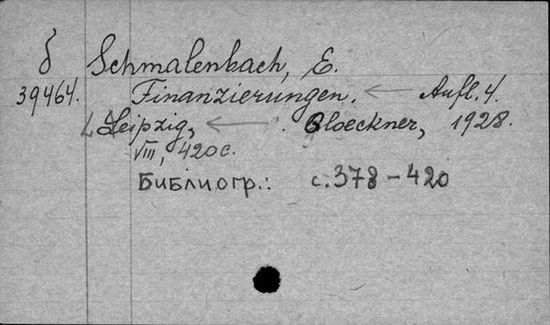 δ Schmalenbach, E.
39464. Finanzierungen. ← Aufl. 4.
Leipzig, ← . Gloeckner, 1928.
VIII, 420 с.
Библиогр.: с. 378 – 420